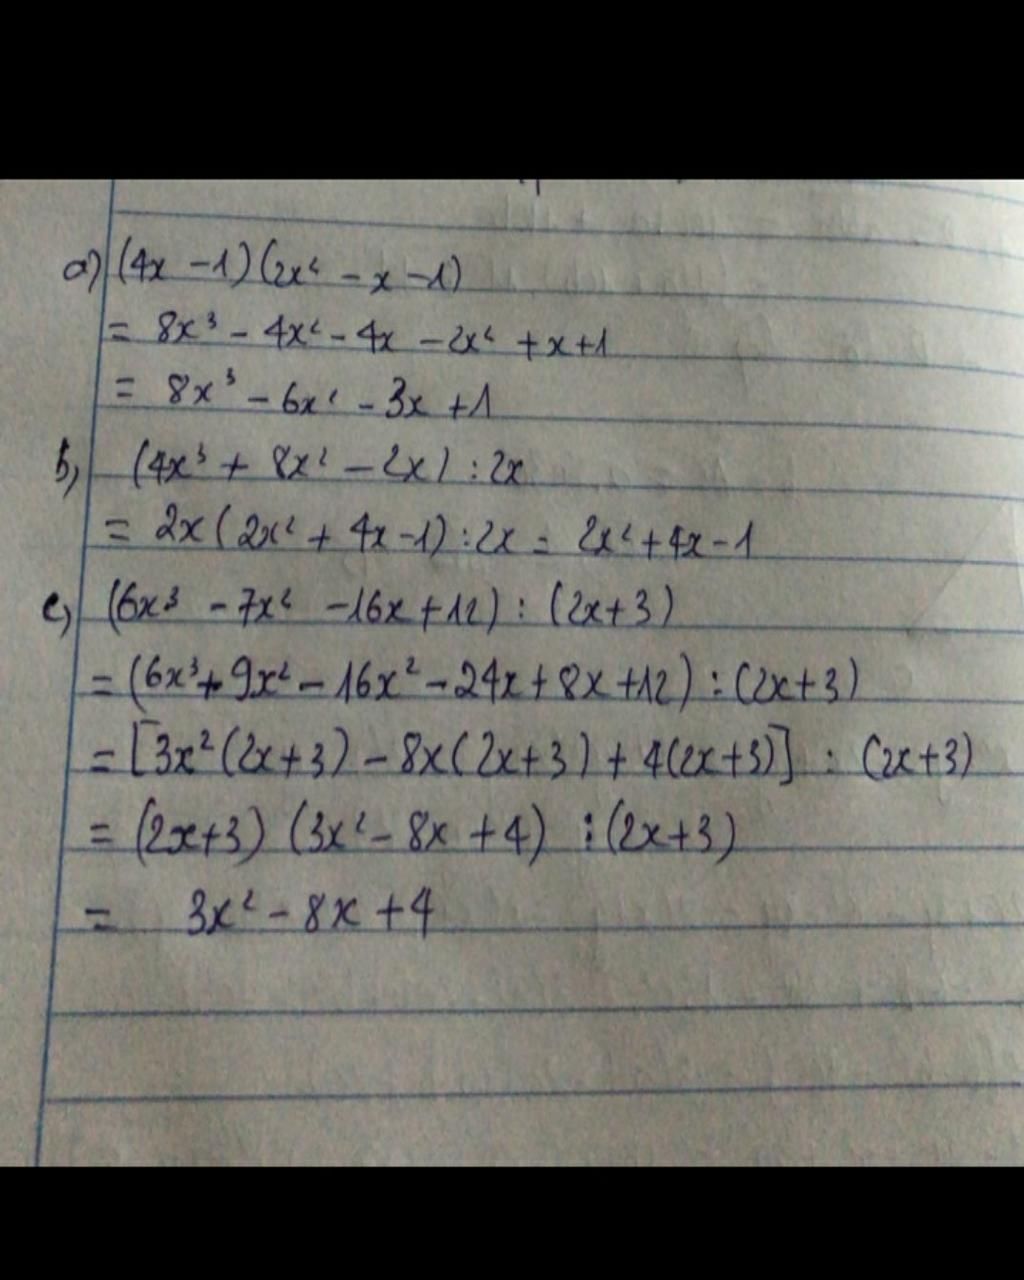 a) (4x - 1)(2x² - x - 1)
= 8x³ - 4x² - 4x - 2x² + x + 1
= 8x³ - 6x² - 3x + 1
b) (4x³ + 8x² - 2x) : 2x
= 2x(2x² + 4x - 1) : 2x = 2x² + 4x - 1
c) (6x³ - 7x² - 16x + 12) : (2x + 3)
= (6x³ + 9x² - 16x² - 24x + 8x + 12) : (2x + 3)
= [3x²(2x + 3) - 8x(2x + 3) + 4(2x + 3)] : (2x + 3)
= (2x + 3) (3x² - 8x + 4) : (2x + 3)
= 3x² - 8x + 4